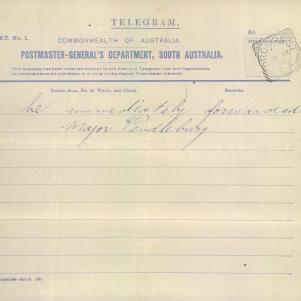 TELEGRAM.
E.T. No. 1.
No.
COMMONWEALTH OF AUSTRALIA.
POSTMASTER-GENERAL'S DEPARTMENT, SOUTH AUSTRALIA.
This Message has been received subject to the Post and Telegraph Act and Regulations.
All complaints to be addressed in writing to the Deputy Postmaster-General.
Station from, No. of Words, and Check.
Remarks.
be immediately forwarded
Major Pendlebury.